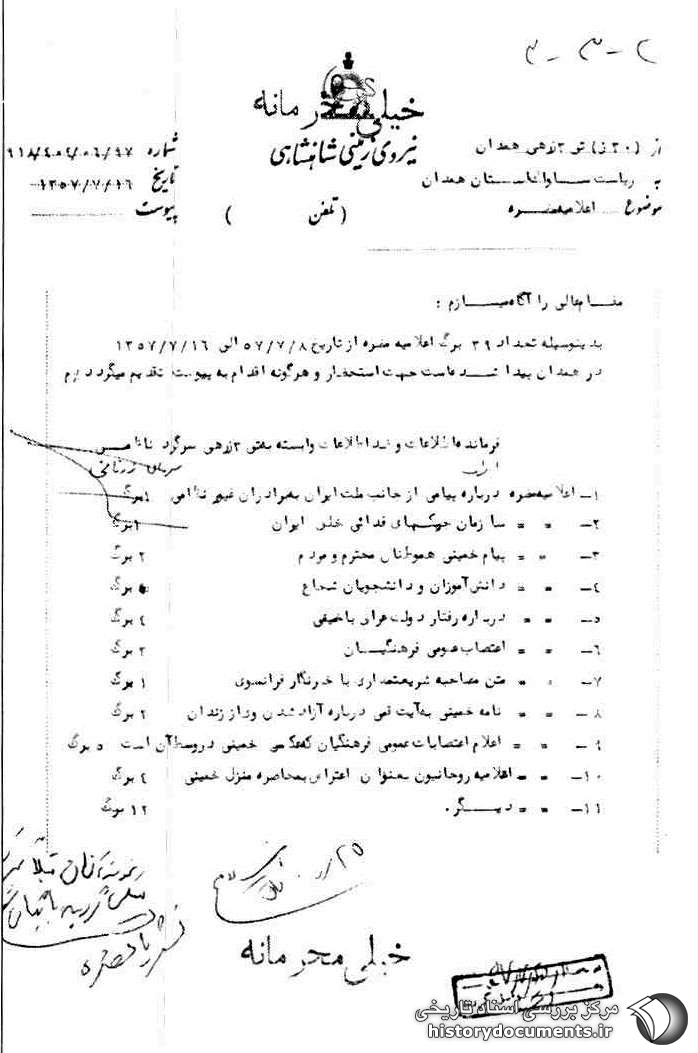 ۲ - ۳ - ۳
خیلی محرمانه
نیروی زمینی شاهنشاهی
از (۳۰ ز) تی ۳ زرهی همدان
به ریاست ساواک استان همدان
موضوع اعلامیه مضره
شماره ۹۱۸/۴۰۲/۰۶/۹۷
تاریخ ۱۳۵۷/۷/۱۶
پیوست
( تلفن )
مقام عالی را آگاه میسازم :
بدینوسیله تعداد ۳۹ برگ اعلامیه مضره از تاریخ ۵۷/۷/۸ الی ۱۳۵۷/۷/۱۶
در همدان پیدا شده است جهت استحضار و هرگونه اقدام به پیوست تقدیم میگردد
فرمانده اطلاعات و ضد اطلاعات وابسته به تی ۳ زرهی سرگرد
۱- اعلامیه مضره درباره پیامی از جانب ملت ایران به برادران غیور نظامی ۱ برگ
۲- " " سازمان چریکهای فدائی خلق ایران ۱ برگ
۳- " " پیام خمینی هموطنان محترم و مردم ۲ برگ
۴- " " دانش‌آموزان و دانشجویان شجاع برگ
۵- " " درباره رفتار دولت عراق با خمینی ۴ برگ
۶- " " اعتصاب عمومی فرهنگیان ۲ برگ
۷- " " متن مصاحبه شریعتمداری با خبرنگار فرانسوی ۱ برگ
۸- " " نامه خمینی به آیت قمی درباره آزاد شدن وی از زندان ۲ برگ
۹- " " اعلام اعتصابات عمومی فرهنگیان که عکس خمینی در وسط آن است ۵ برگ
۱۰- " " اعلامیه روحانیون بعنوان اعتراض به محاصره منزل خمینی ۴ برگ
۱۱- " " دیگر . ۱۲ برگ
خیلی محرمانه
مرکز بررسی اسناد تاریخی
historydocuments.ir